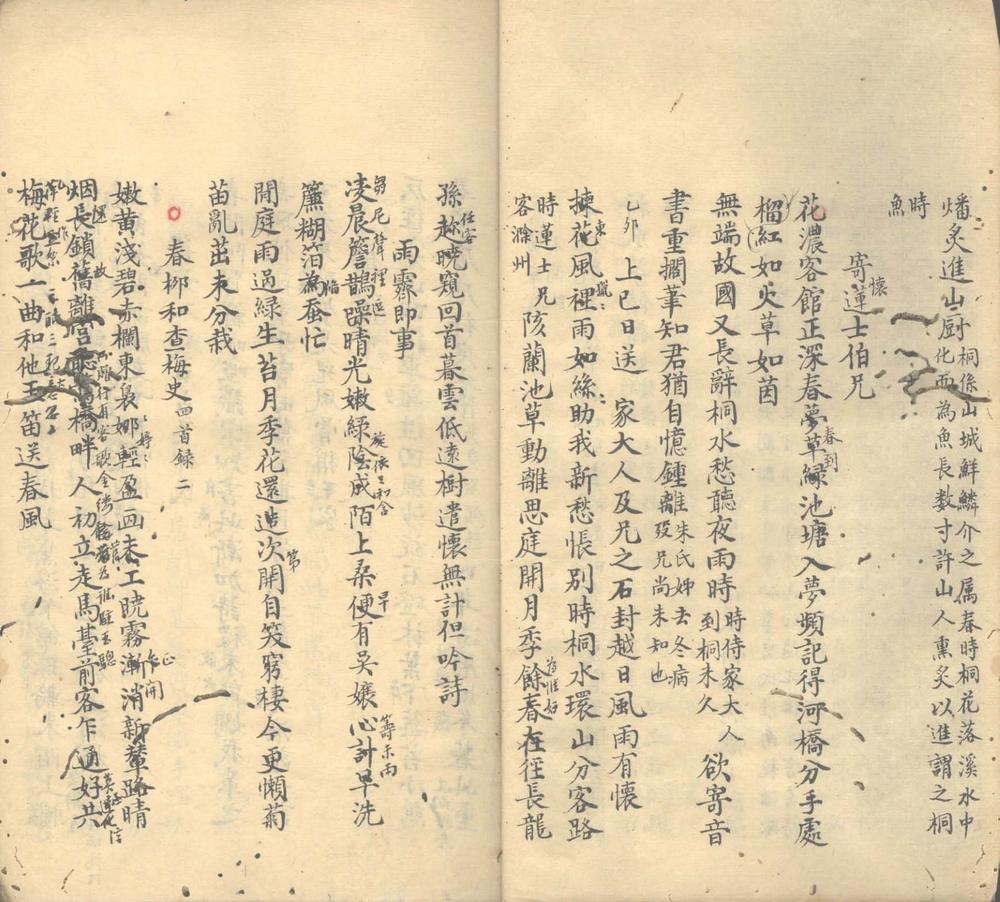 燔炙進山厨桐係山城鮮鱗介之属春時桐花落溪水中
時化而為魚長数寸許山人熏炙以進謂之桐
魚
寄懷蓮士伯兄
花濃客館正深春夢草緑池塘入夢頻記得河橋分手處
春到
榴紅如火草如茵
無端故國又長辭桐水愁聽夜雨時時侍家大人到桐未久欲寄音
書重擱筆知君猶自憶鍾離朱氏姊去冬病歿兄尚未知也
乙卯上巳日送家大人及兄之石封越日風雨有懷
楝花風裡雨如絲助我新愁悵别時桐水環山分客路
時蓮士兄客滁州陔蘭池草動離思庭開月季餘春在徑長龍
孫趁曉窺回首暮雲低遠樹遣懷無計但吟詩
雨霽即事
凌晨簷鵲躁晴光嫩緑陰成陌上桑便有吴孃心計早洗
簾糊箔為蚕忙
閒庭雨過緑生苔月季花還造次開自笑窮棲今更懶菊
第
苗亂茁未分栽
春栁和查梅史四首録二
嫩黄淺碧赤欄東長娜輕盈画未工曉霧漸消新輦路晴
烟長鎖舊離宫橋畔人初立走馬臺前客乍通好共
梅花歌一曲和他玉笛送春風